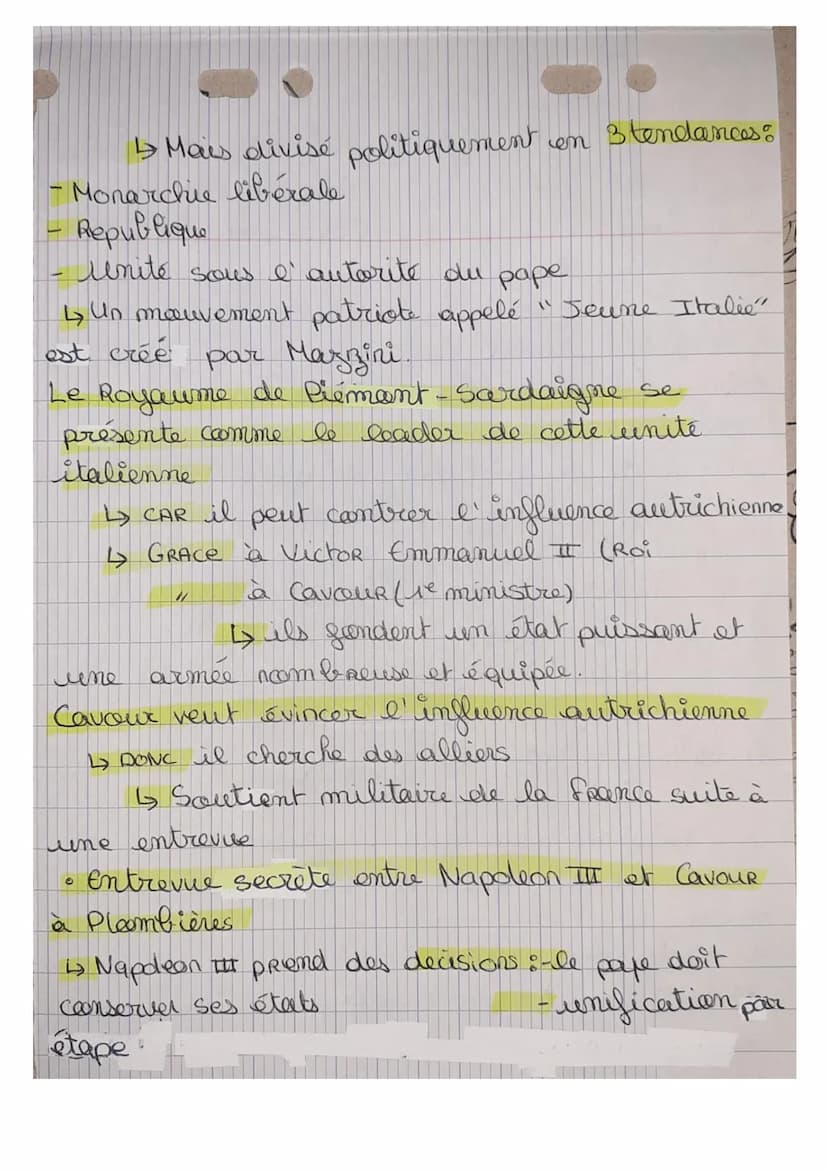 ↳ Mais divisé politiquement en 3 tendances:
- Monarchie libérale
- Republique
- Unité sous l'autorité du pape
↳ Un mouvement patriote appelé "Jeune Italie"
est créé par Mazzini.
Le Royaume de Piémont-Sardaigne se
présente comme le leader de cette unité
italienne
↳ CAR il peut contrer l'influence autrichienne
↳ GRACE à Victor Emmanuel II (Roi
" à Cavour (1e ministre)
↳ ils fondent un état puissant et
une armée nombreuse et équipée.
Cavour veut évincer l'influence autrichienne
↳ DONC il cherche des alliers
↳ Soutient militaire de la France suite à
une entrevue
• Entrevue secrète entre Napoleon III et Cavour
à Plombières
↳ Napoleon III prend des decisions :-le pape doit
conserver ses états - unification par
étape.